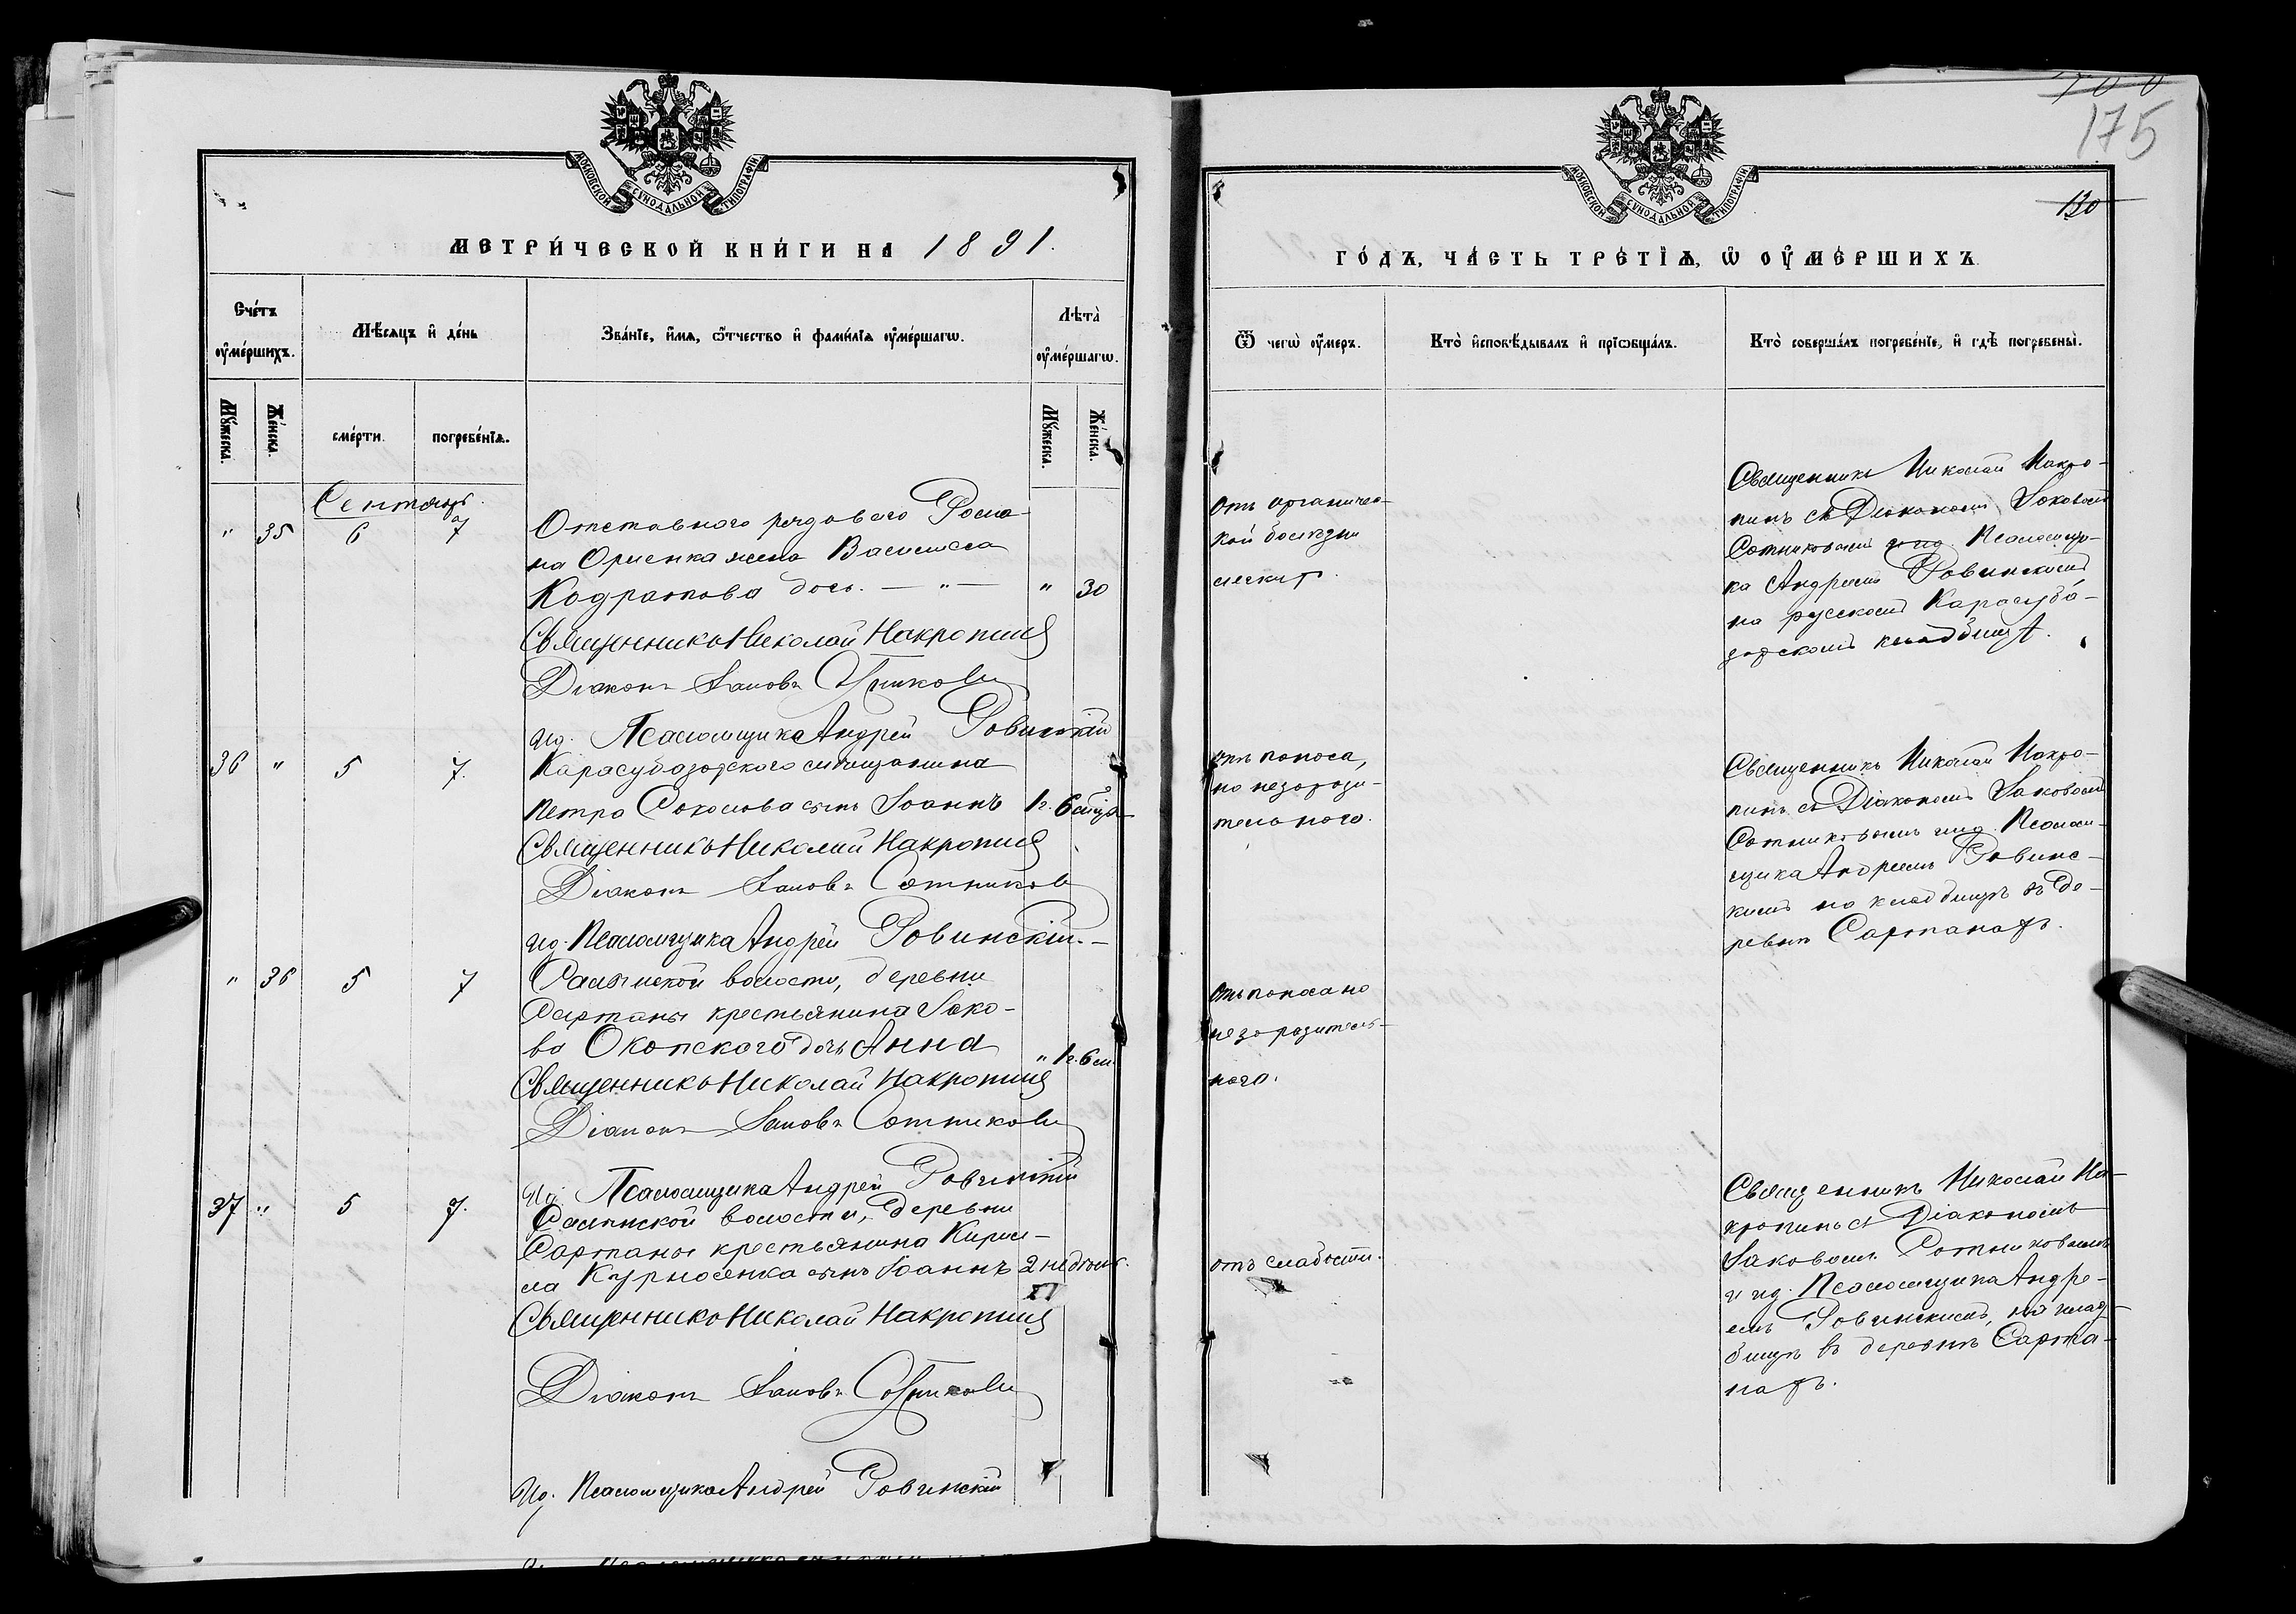 МОСКОВСКОЙ СѴНОДАЛЬНОЙ ТИПОГРАФІИ
МЕТРИ́ЧЕСКОЙ КНИ́ГИ НА 1891.
Сче́тъ ᲂу҆ме́ршихъ.
Мѣ́сяцъ и҆ де́нь
Зва́нїе, и҆́мя, ѻ҆́тчество и҆ фами́лїя ᲂу҆ме́ршагѡ.
Лѣ́та ᲂу҆ме́ршагѡ.
Мꙋ́жеска.
Же́нска.
сме́рти.
погребе́нїѧ.
Мꙋ́жеска.
Же́нска.
Сентябрь.
" 35 6 7 Отставного рядового Рома-
на Орленка жена Василисса
Кодратова дочь. — " — " 30
Священникъ Николай Накропинъ
Діаконъ Іаковъ Сотниковъ
ид. Псаломщика Андрей Ровинскій
36 " 5 7. Карасубазарского мѣщанина
Петра Соколова сынъ Іоаннъ 1г. 6 мѣсяц
Священникъ Николай Накропинъ
Діаконъ Іаковъ Сотниковъ
ид. Псаломщика Андрей Ровинскій.
" 36 5 7 Салынской волости, деревни
Сартаны крестьянина Іако-
ва Окопского дочь Анна " 1г. 6 м.
Священникъ Николай Накропинъ
Діаконъ Іаковъ Сотниковъ
ид. Псаломщика Андрей Ровинскій
37 " 5 7. Салынской волости, деревни
Сартаны крестьянина Кирил-
ла Курносенка сынъ Іоаннъ 2 недѣль.
Священникъ Николай Накропинъ
Діаконъ Іаковъ Сотниковъ
Ид. Псаломщика Андрей Ровинскій
175
130
МОСКОВСКОЙ СѴНОДАЛЬНОЙ ТИПОГРАФІИ
ГО́ДЪ, ЧА́СТЬ ТРЕ́ТЇѦ, Ѡ҆ ОУ҆МЕ́РШИХЪ
Ѿ чегѡ̀ ᲂу҆́меръ.
Кто̀ и҆сповѣ́дывалъ и҆ прїѡбща́лъ.
Кто̀ соверша́лъ погребе́нїе, и҆ гдѣ̀ погребены̀.
Отъ органичес-
кой болѣзни
Священникъ Николай Накро-
пинъ съ Діакономъ Іаковомъ
Сотниковымъ и ид. Псаломщи-
ка Андреемъ Ровинскимъ
на русскомъ Карасуба-
зарскомъ кладбищѣ.
отъ поноса,
но незарази-
тельного.
Священникъ Николай Накро-
пинъ съ Діакономъ Іаковомъ
Сотниковымъ и ид. Псалом-
щика Андреемъ Ровинс-
кимъ на кладбищѣ въ де-
ревнѣ Сартанахъ.
Отъ поноса но
незаразитель-
ного.
отъ слабости.
Священникъ Николай На-
кропинъ съ Діакономъ
Іаковомъ Сотниковымъ
и ид. Псаломщика Андре-
емъ Ровинскимъ, на клад-
бищѣ въ деревнѣ Сарта-
нахъ.